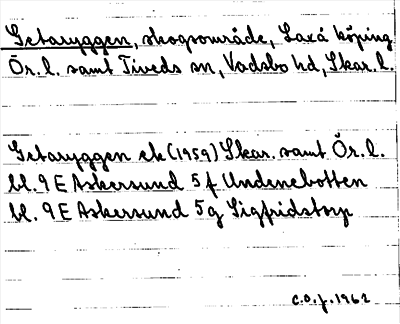 Getaryggen, skogsområde, Laxå köping
Ör. l. samt Tiveds sn, Vadsbo hd, Skar. l.
Getaryggen ek (1959) Skar. samt Ör. l.
bl. 9 E Askersund 5 f Undenebotten
bl. 9 E Askersund 5 g Sigfridstorp
c.o.f. 1962